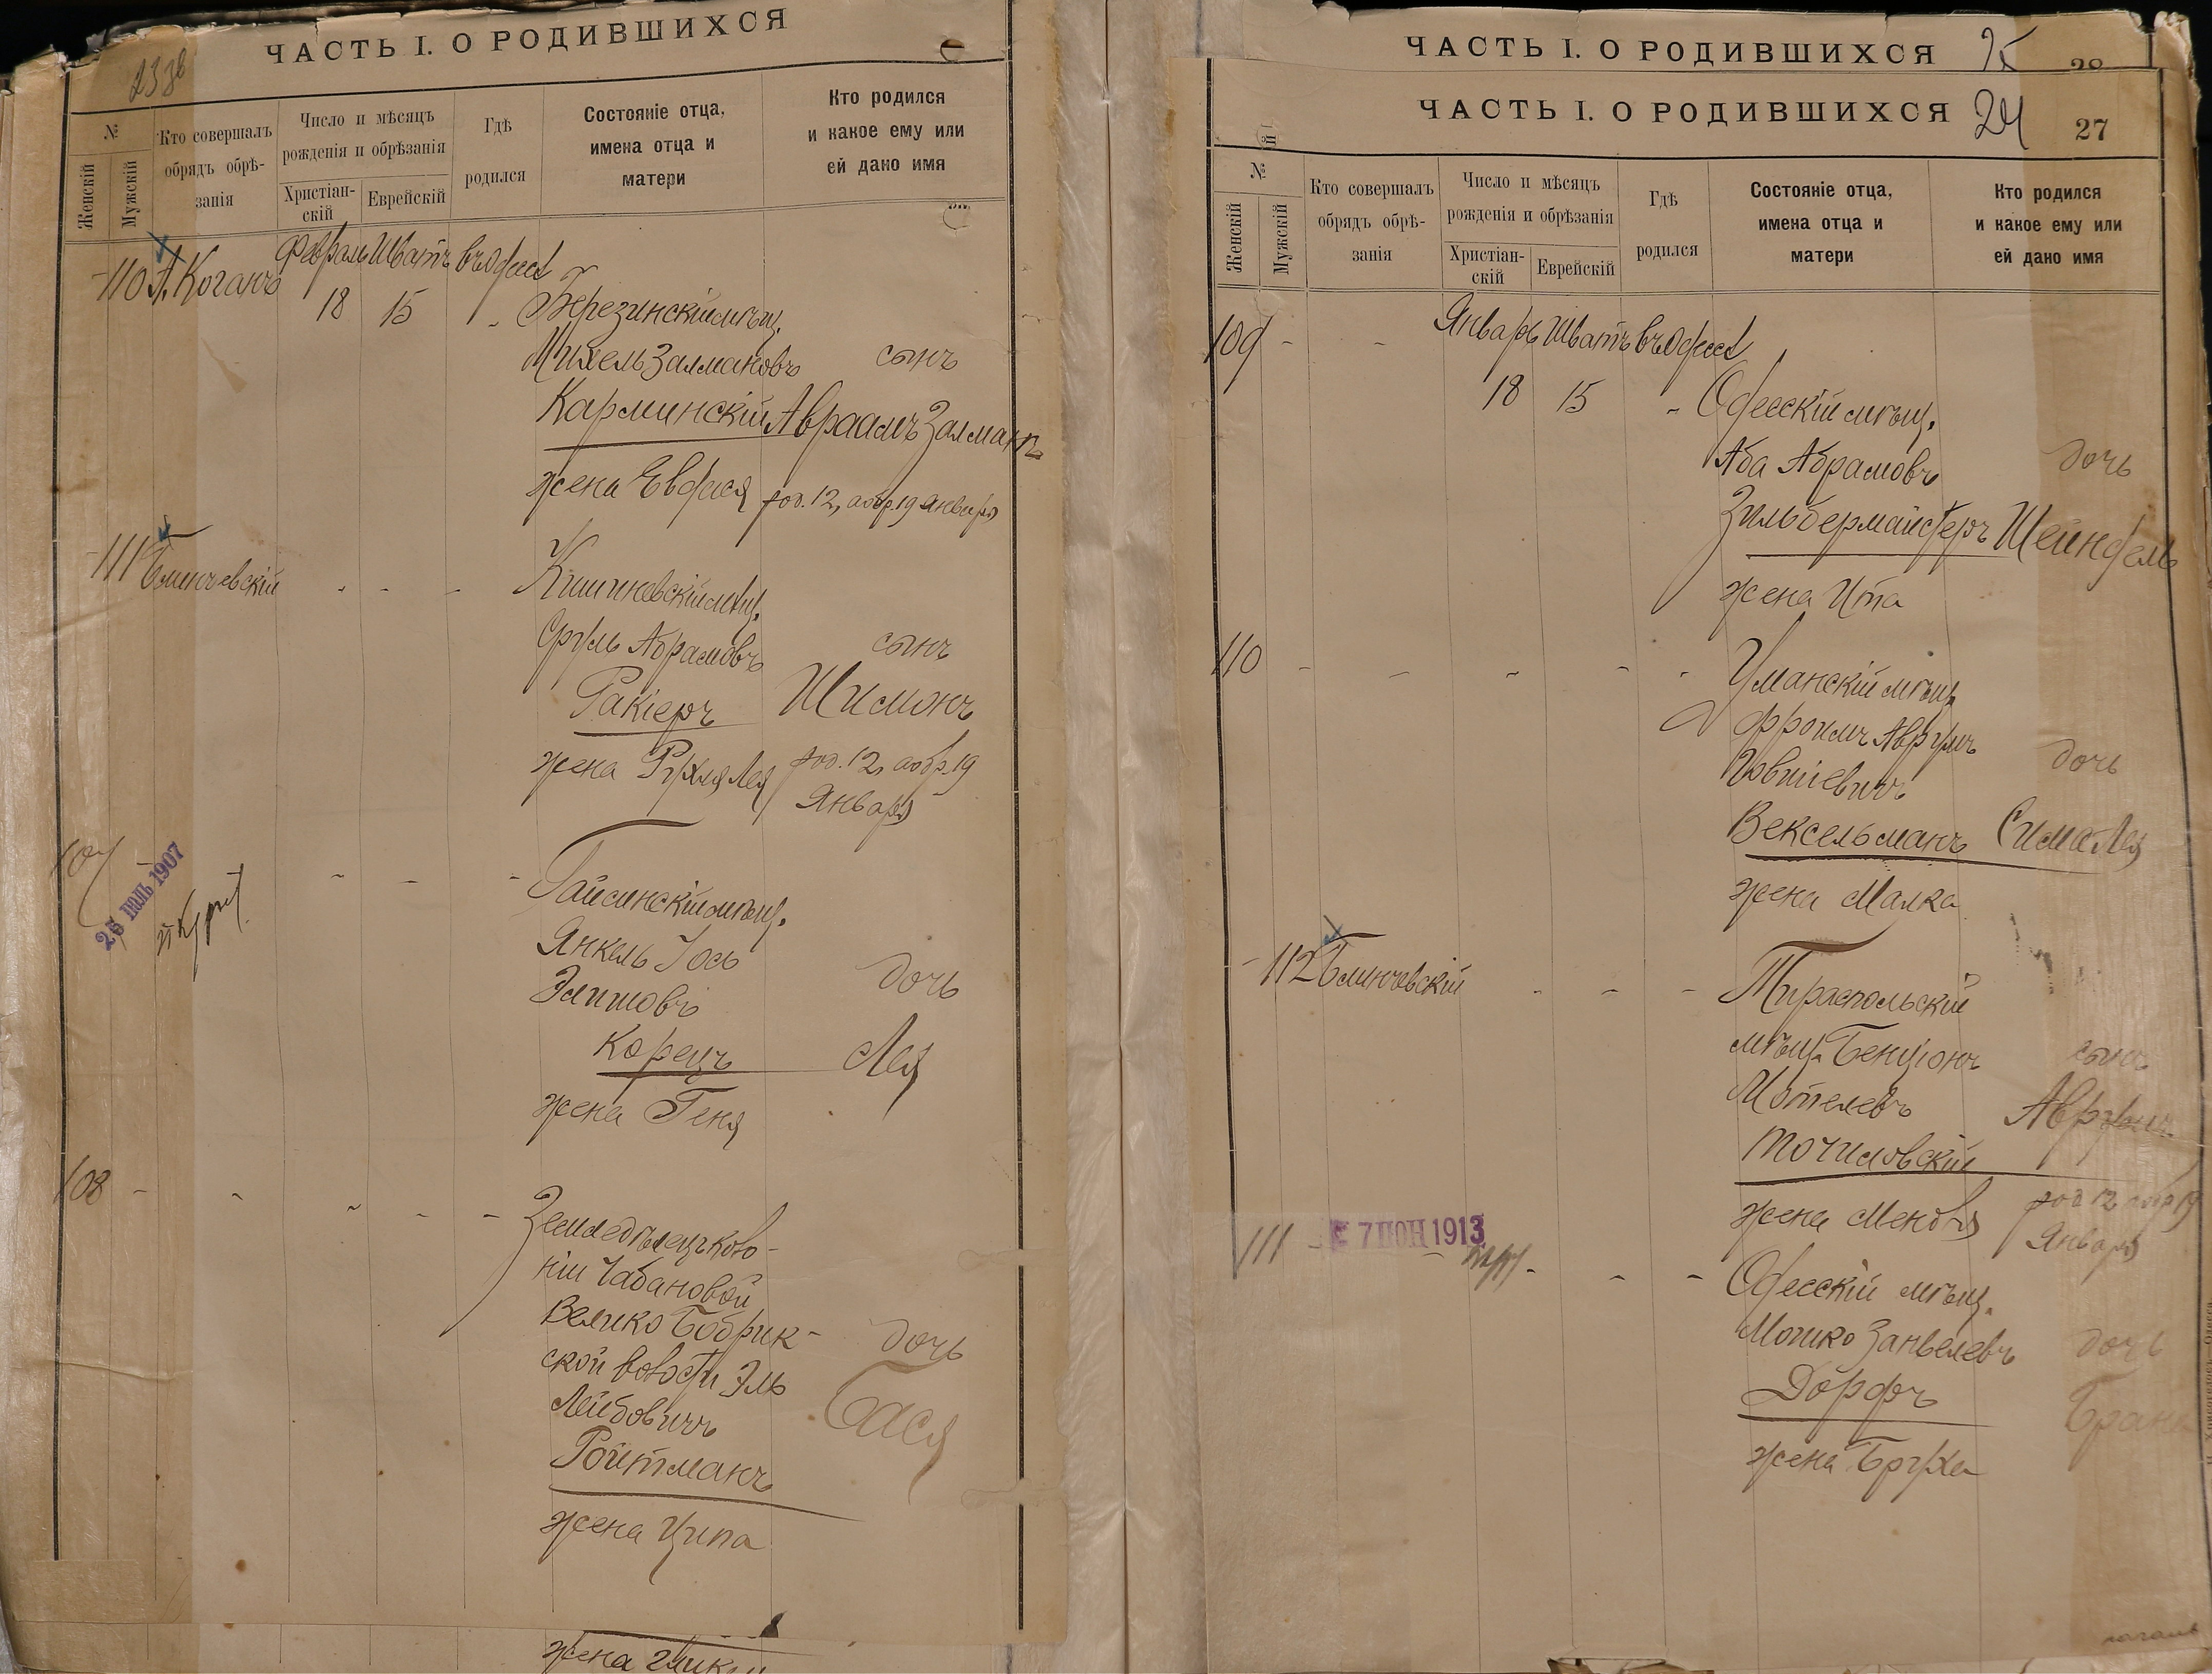 ЧАСТЬ I. О РОДИВШИХСЯ
№
Женскій
Мужскій
Кто совершалъ обрядъ обрѣ-
занія
Число и мѣсяцъ
рожденія и обрѣзанія
Христіан-
скій
Еврейскій
Гдѣ
родился
Состояніе отца,
имена отца и
матери
Кто родился
и какое ему или
ей дано имя
110 А. Коганъ
Февраль Шватъ въ Одессѣ
18 15 Березинскій мѣщ.
Михель Залмановъ сынъ
Карминскій Авраамъ Залманъ
жена Евдася род. 12, а обр. 19 Января
111 Блинчевскій Кишиневскій мѣщ.
Сруль Абрамовъ сынъ
Ракіеръ Шимонъ
жена Рухля Лея род. 12, а обр. 19
Января
107
Гайсинскій мѣщ.
Янкель Іось
дочь
Корецъ Лея
жена Геня
108 Земледѣлецъ коло-
ніи Чабановой
Велико Бобрик-
ской волости Эль дочь
Лейбовичъ Бася
Ройтманъ
жена Ципа
ЧАСТЬ I. О РОДИВШИХСЯ 25 28
ЧАСТЬ I. О РОДИВШИХСЯ 24 27
№
Женскій
Мужскій
Кто совершалъ
обрядъ обрѣ-
занія
Число и мѣсяцъ
рожденія и обрѣзанія
Христіан-
скій
Еврейскій
Гдѣ
родился
Состояніе отца,
имена отца и
матери
Кто родился
и какое ему или
ей дано имя
109 Январь Шватъ въ Одессѣ
18 15 Одесскій мѣщ.
Аба Абрамовъ дочь
Зильбермайстеръ Шейндель
жена Ита
110 Уманскій мѣщ.
Фроимъ Аврумъ
дочь
Вексельманъ Сима Лея
жена Малка
112 Блинчевскій Тираспольскій
мѣщ. Бенціонъ сынъ
Мотелевъ Аврумъ
Точиловскій
жена род 12 обр 19
Января
111 7 ІЮН 1913
Одесскій мѣщ.
Мошко Занвелевъ дочь
Дорфъ
жена Бруха